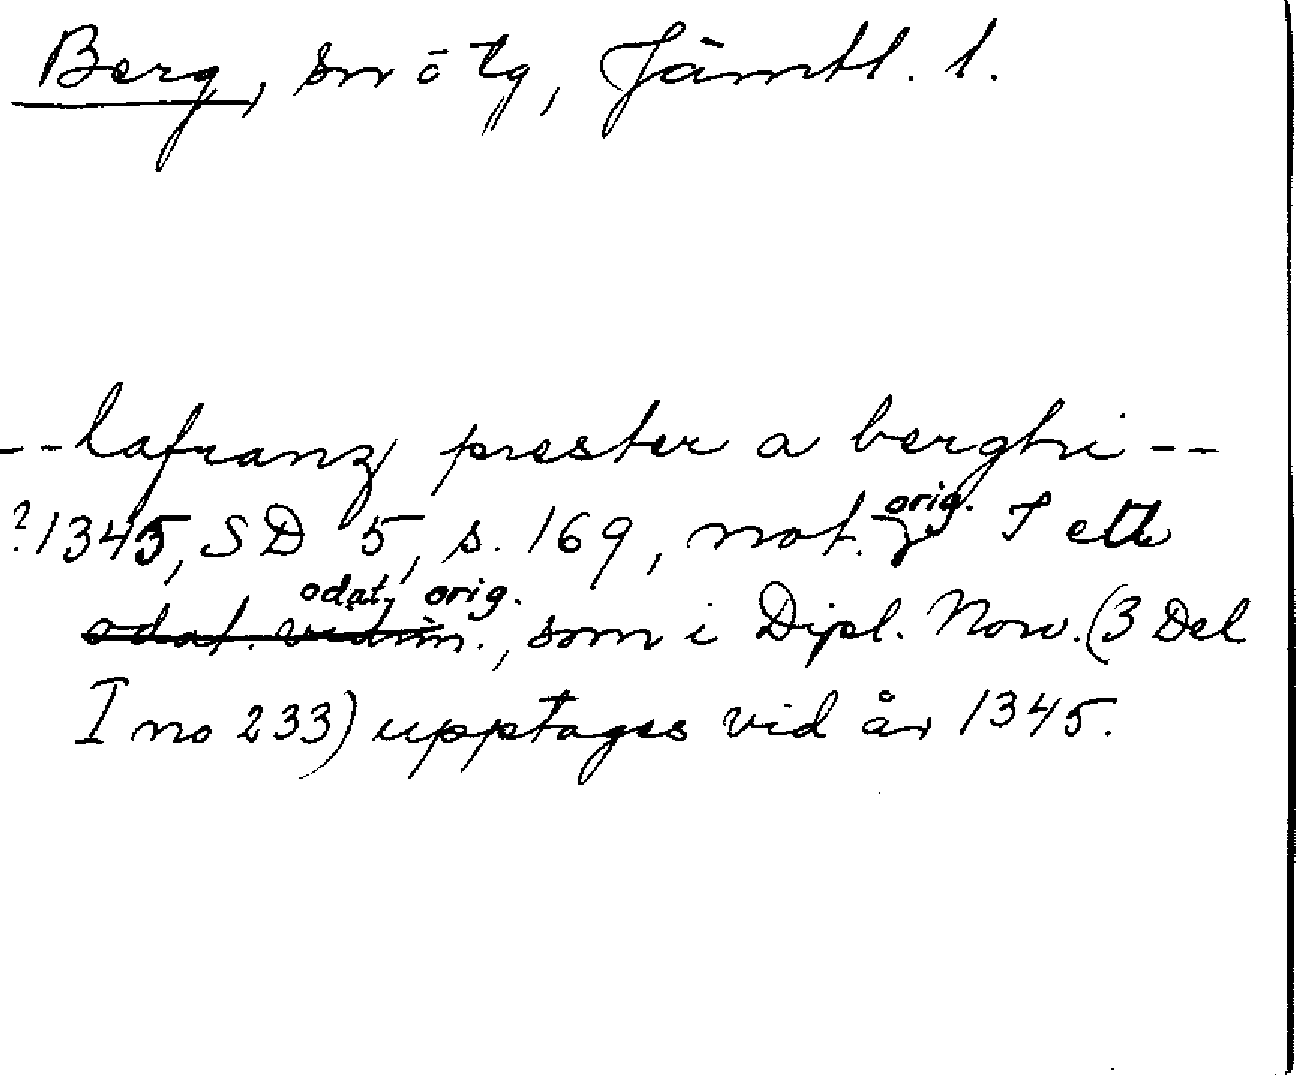 Berg, sn ō tg, Jämtl. l.
--lafranz prester a berghi--
?1345, SD 5, s. 169, not. orig. I ett
odat. orig.
odat. vidim., som i Dipl. Norv. (3 Del
I no 233) upptages vid år 1345.